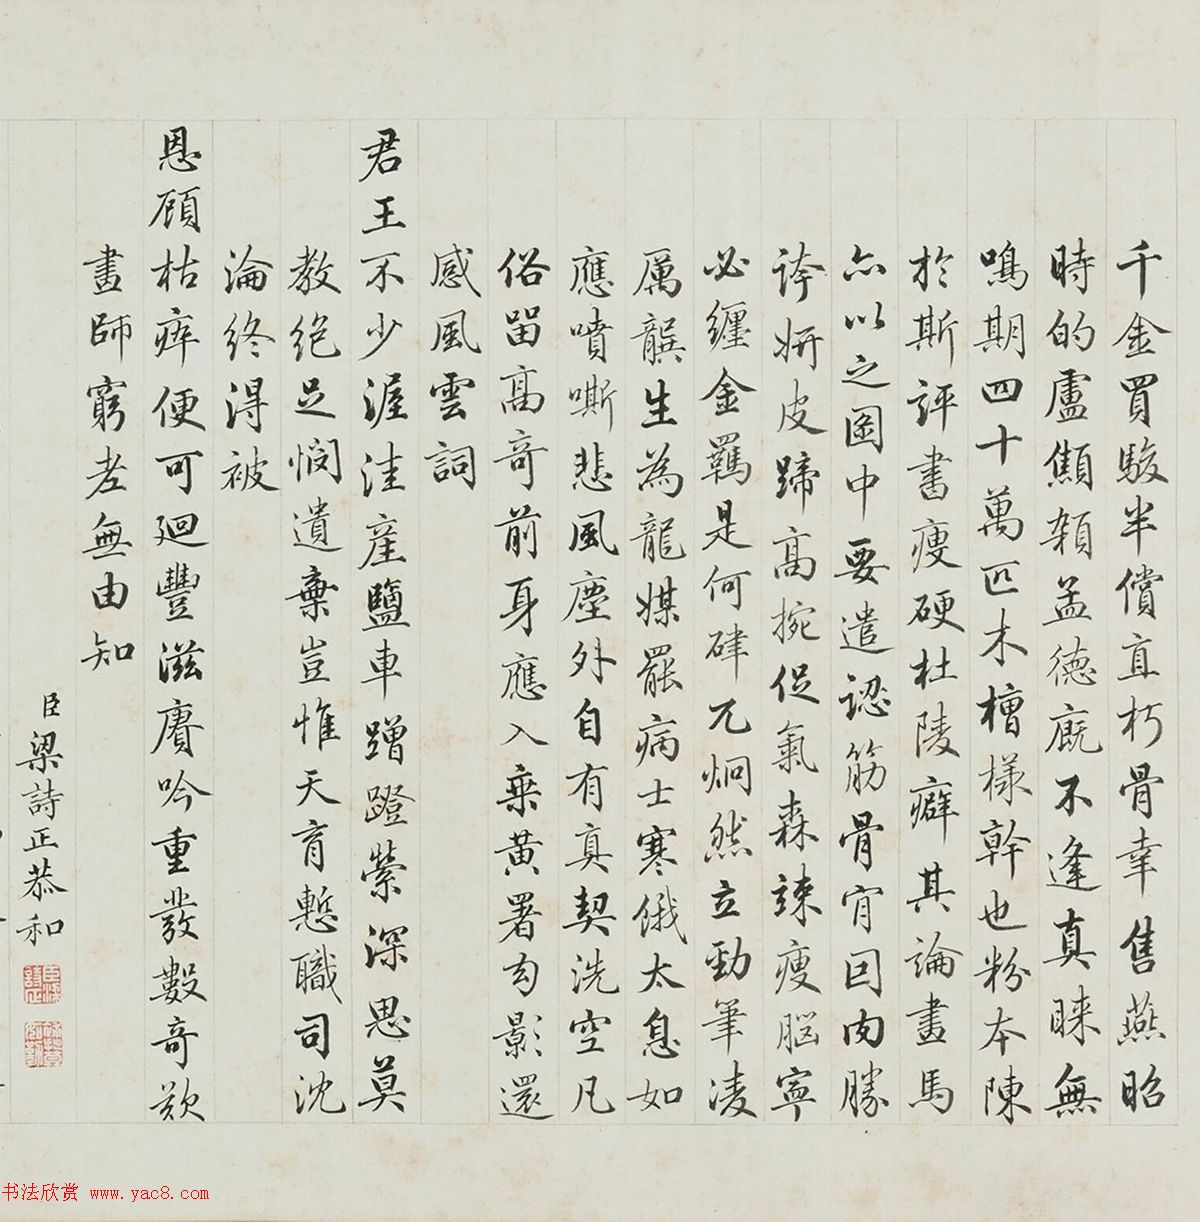 千金買駿半償直朽骨幸售燕昭
時的盧顦顇孟德廄不逢真睞無
鳴期四十萬匹木檀樣幹也粉本陳
於斯評書瘦硬杜陵癖其論畫馬
亦以之圖中要遣認筋骨肯因肉勝
誇妍皮蹄高捥促氣森竦瘦腦寧
必纏金羈是何硉兀炯然立勁筆凌
厲騏生為龍媒罷病士寒俄太息如
應噴嘶悲風塵外自有真契洗空凡
俗留高奇前身應入乘黃署匃影還
感風雲詞
君王不少渥洼産鹽車蹭蹬縈深思莫
教絕足憫遺棄豈惟天育慙職司沈
淪終得被
恩顧枯瘁便可迴豐滋賡吟重發數奇歎
畫師窮老無由知
臣梁詩正恭和
书法欣赏 www.yac8.com